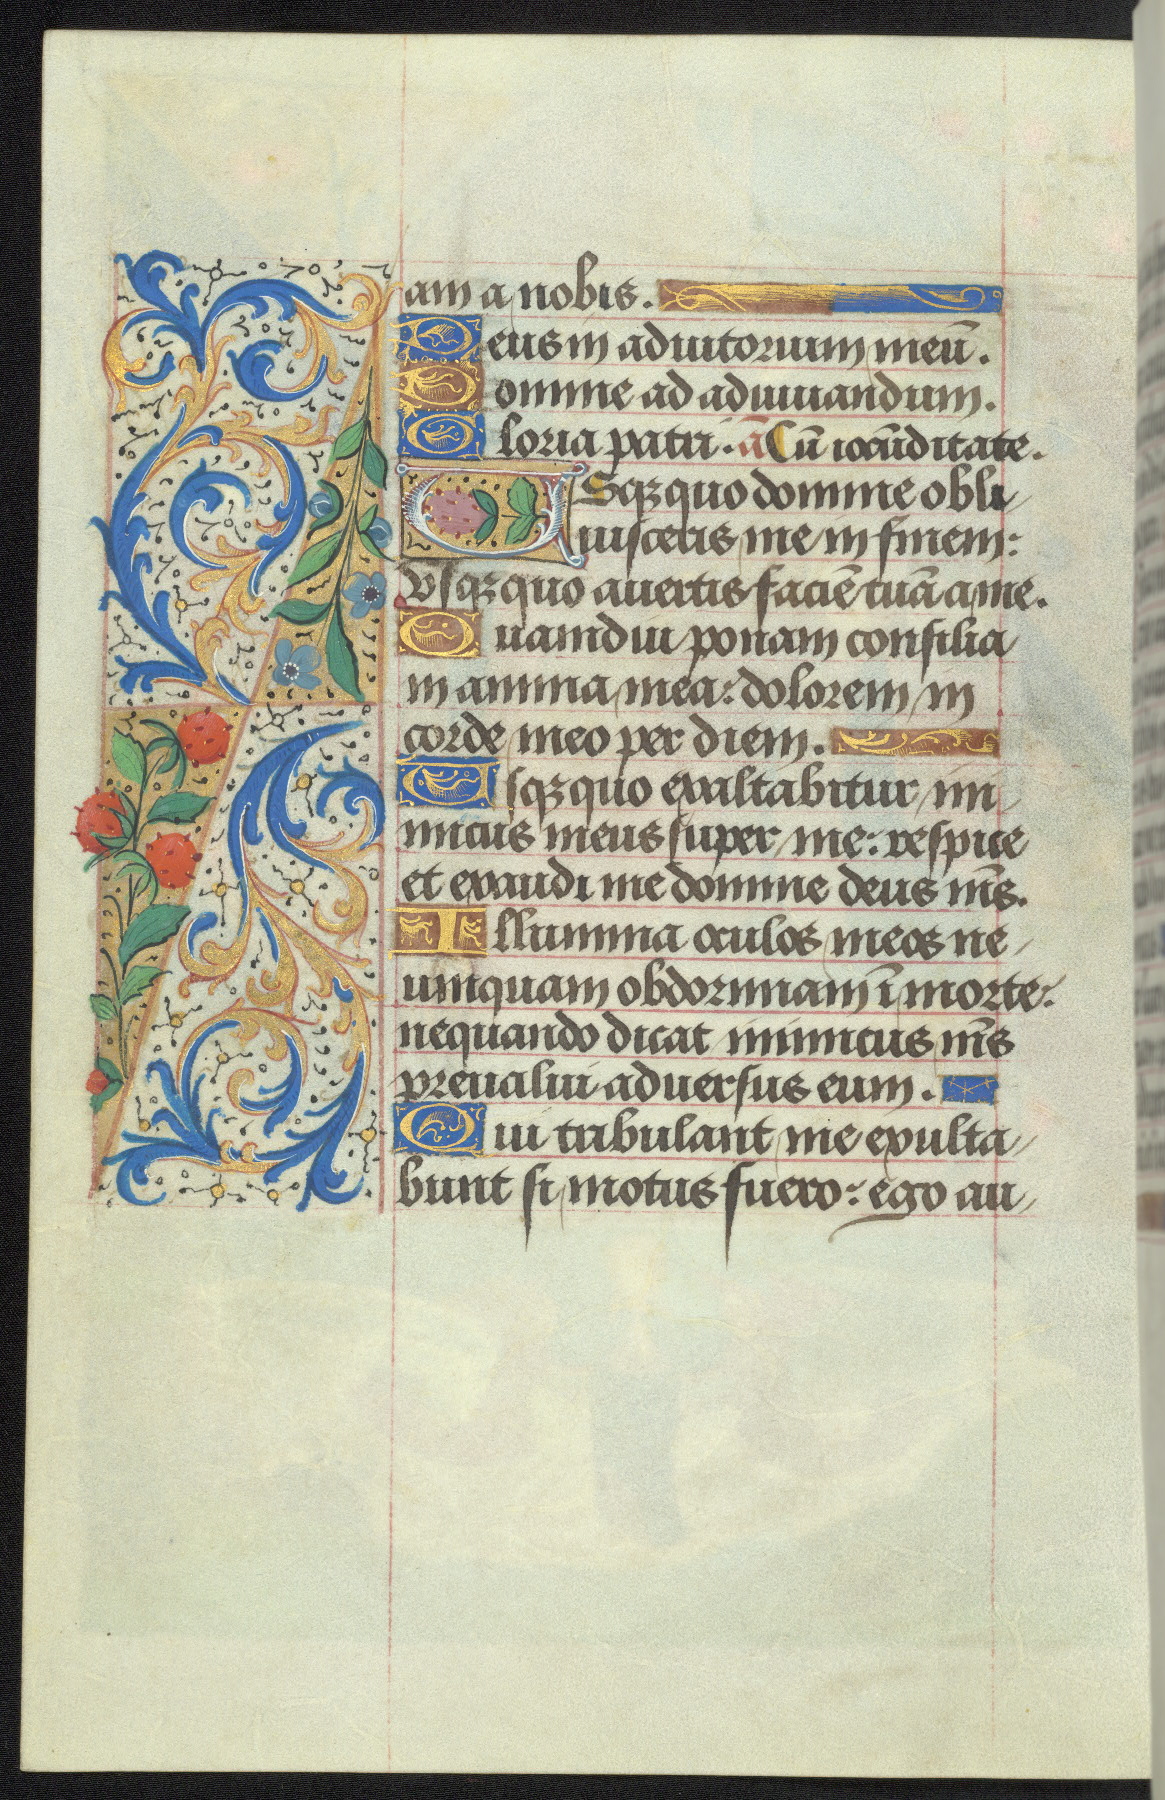 am a nobis.
Deus in adiutorium meū.
Domine ad adiuuandum.
Gloria patri. ā Cū iocūditate.
USqȝquo domine obli
uisceris me in finem:
vsqȝquo auertis faciē tuā a me.
Quamdiu ponam consilia
in anima mea: dolorem in
corde meo per diem.
Usqȝquo exaltabitur ini
micus meus super me: respice
et exaudi me domine deus m̄s.
Illumina oculos meos ne
umquam obdormiam ī morte:
nequando dicat inimicus m̄s
preualui aduersus eum.
Qui tribulant me exulta
bunt si motus fuero: ego au